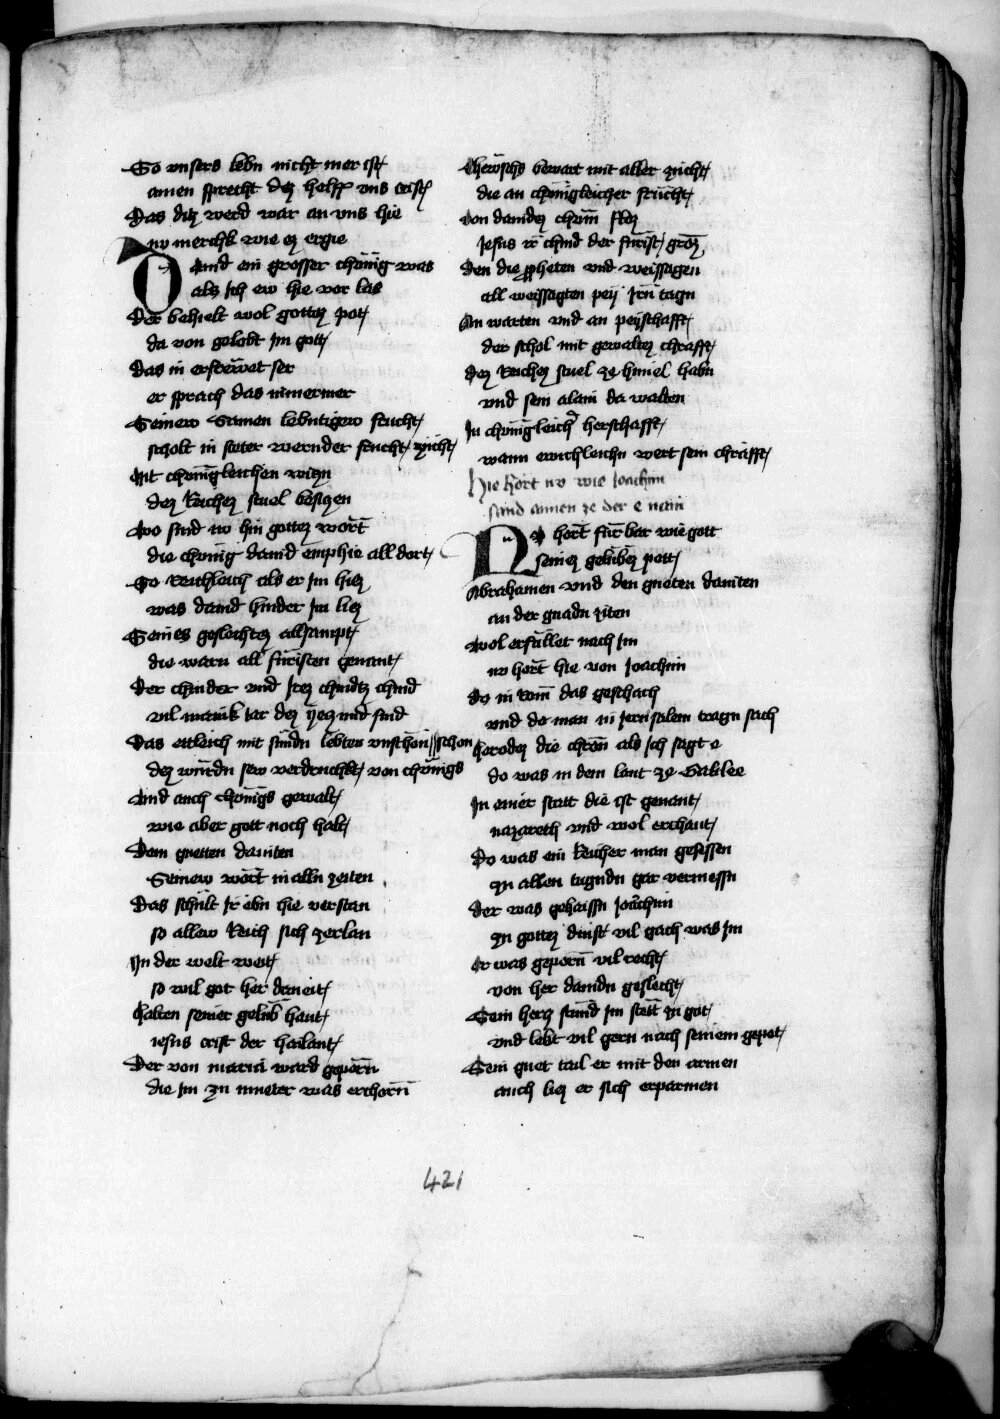 So vnsers lebn nicht mer ist
amen sprecht dez helff vns crist
Das ditz werd war an vns hie
nv merchk wie ez ergie
Dauid ein grosser chönig was
als ich ew hie vor las
Der behielt wol gottez pot
da von gelobt im got
Das in erfrewet ser
er sprach das nimermer
Seinew Samen lebntigew frucht
scholt in steter wernder frucht zücht
Mit chönigleichen witzn
dez Reichez stuel besitzen
Wo sind nv hin gottez wort
die chönig dauid emphie all dort
So Reichleich als er im hiez
was dauid hinder im liez
Seines geslechtez allsampt
die warn all fürsten genant
Der chinder vnd irez chindtz chind
vil manik iar dez yetzund sind
Das ettleich mit sündn lebten vnschön schon
dez würdn sew verdruchkt von chönigs
Vnd auch chönigs gewalt
wie aber gott noch halt
Dem guetten dauiten
Seinew wort in alln zeiten
Das schült ir ebn hie verstan
so allew Reich sich zerlan
In der welt weit
so wil got her dan eit
Halten seiner gelüb haut
iesus crist der hailant
Der von maria ward geporn
die im zu mueter was erchorn
Chewschs bewart mit aller zücht
die an chönigleicher frücht
Von dauidez chom floz
Jesus ir chind der fürst groz
Den die propheten vnd weissagen
all weissagten pey irn tagn
An warten vnd an peyschafft
der schol mit gewaltez chrafft
Dez Reichez stuel ze himel habn
vnd sein alain da walten
In chönigleicher herschafft
wann ewichleichn wert sein chrafft
Hie hört nv wie Joachim
sand annen ze der e nam
Nv hört für bar wie gott
seinez gelübez pott
Abrahamen vnd den gueten dauiten
an der gnadn ziten
Wol erfüllet nach im
nv hört hie von Joachim
Do in Rom das geschach
vnd do man in Jerusalem tragn sach
Herodez die chron als ich sagt e
do was in dem lant ze Galilee
In einer statt die ist genant
nazareth vnd wol erchant
Do was ein Reicher man gesessen
zu allen tugndn gar vermessn
Der was gehaissn Joachim
zu gottez dinst vil gach was im
Er was geporn vil recht
von her dauidn geslecht
Sein hertz stund im stett zu got
vnd lebt vil gern nach seinem gepot
Sein guet tail er mit den armen
auch liez er sich erparmen
421